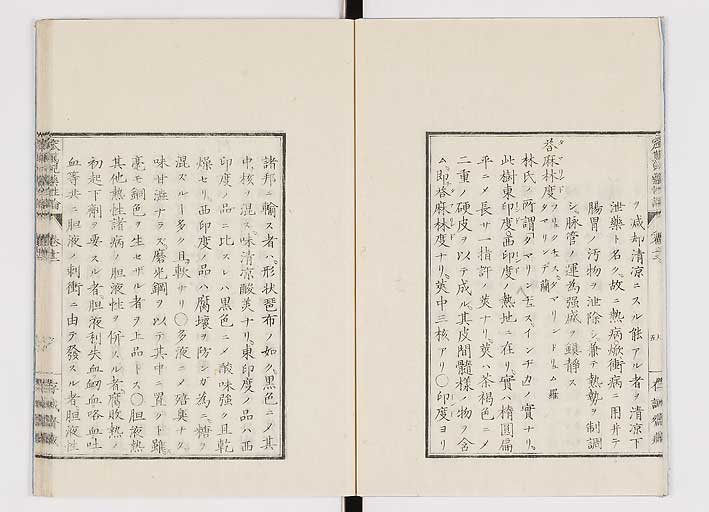 ヲ減却清凉ニスル能アル者ヲ清凉下
泄藥ト名ク故ニ熱病焮衝病ニ用井テ
腸胃ノ汚物ヲ泄除シ兼テ熱勢ヲ制調
シ脉管ノ運為强盛ヲ鎮静ス
荅麻林度
タマリンデ蘭
林氏ノ所謂タマリンヂュス、インヂカノ實ナリ
此樹東印度西印度ノ熱地ニ在リ實ハ橢圓扁
平ニメ長サ一指許ノ莢ナリ莢ハ茶褐色ニメ
二重ノ硬皮ヲ以テ成ル其皮間髓様ノ物ヲ含
ム即荅麻林度ナリ莢中三核アリ〇印度ヨリ
諸邦ニ輸ス者ハ形状琵布ノ如ク黒色ニメ其
中核ヲ混ス味清凉酸美ナリ東印度ノ品ハ西
印度ノ品ニ比スレハ黒色ニメ酸味强ク且乾
燥セリ西印度ノ品ハ腐壊ヲ防ンガ為ニ糖ヲ
混ズルヿ多ク且軟ナリ〇多液ニメ殠奥ナク
味甘澁ナラズ磨光鋼ヲ以テ其中ニ置クト雖
毫モ銅色ヲ生セザル者ヲ上品トス〇胆液熱
其他熱性諸病ノ胆液性ヲ併スル者腐敗熱ノ
初起下劑ヲ要スル者胆液利失血衂血咯血吐
血等共ニ胆液ノ刺衝ニ由テ發スル者胆液性